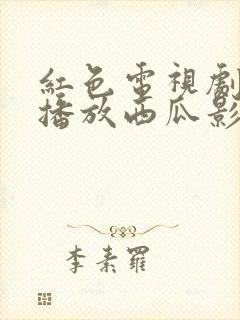 紅色電視劇
播放西瓜影
李素羅